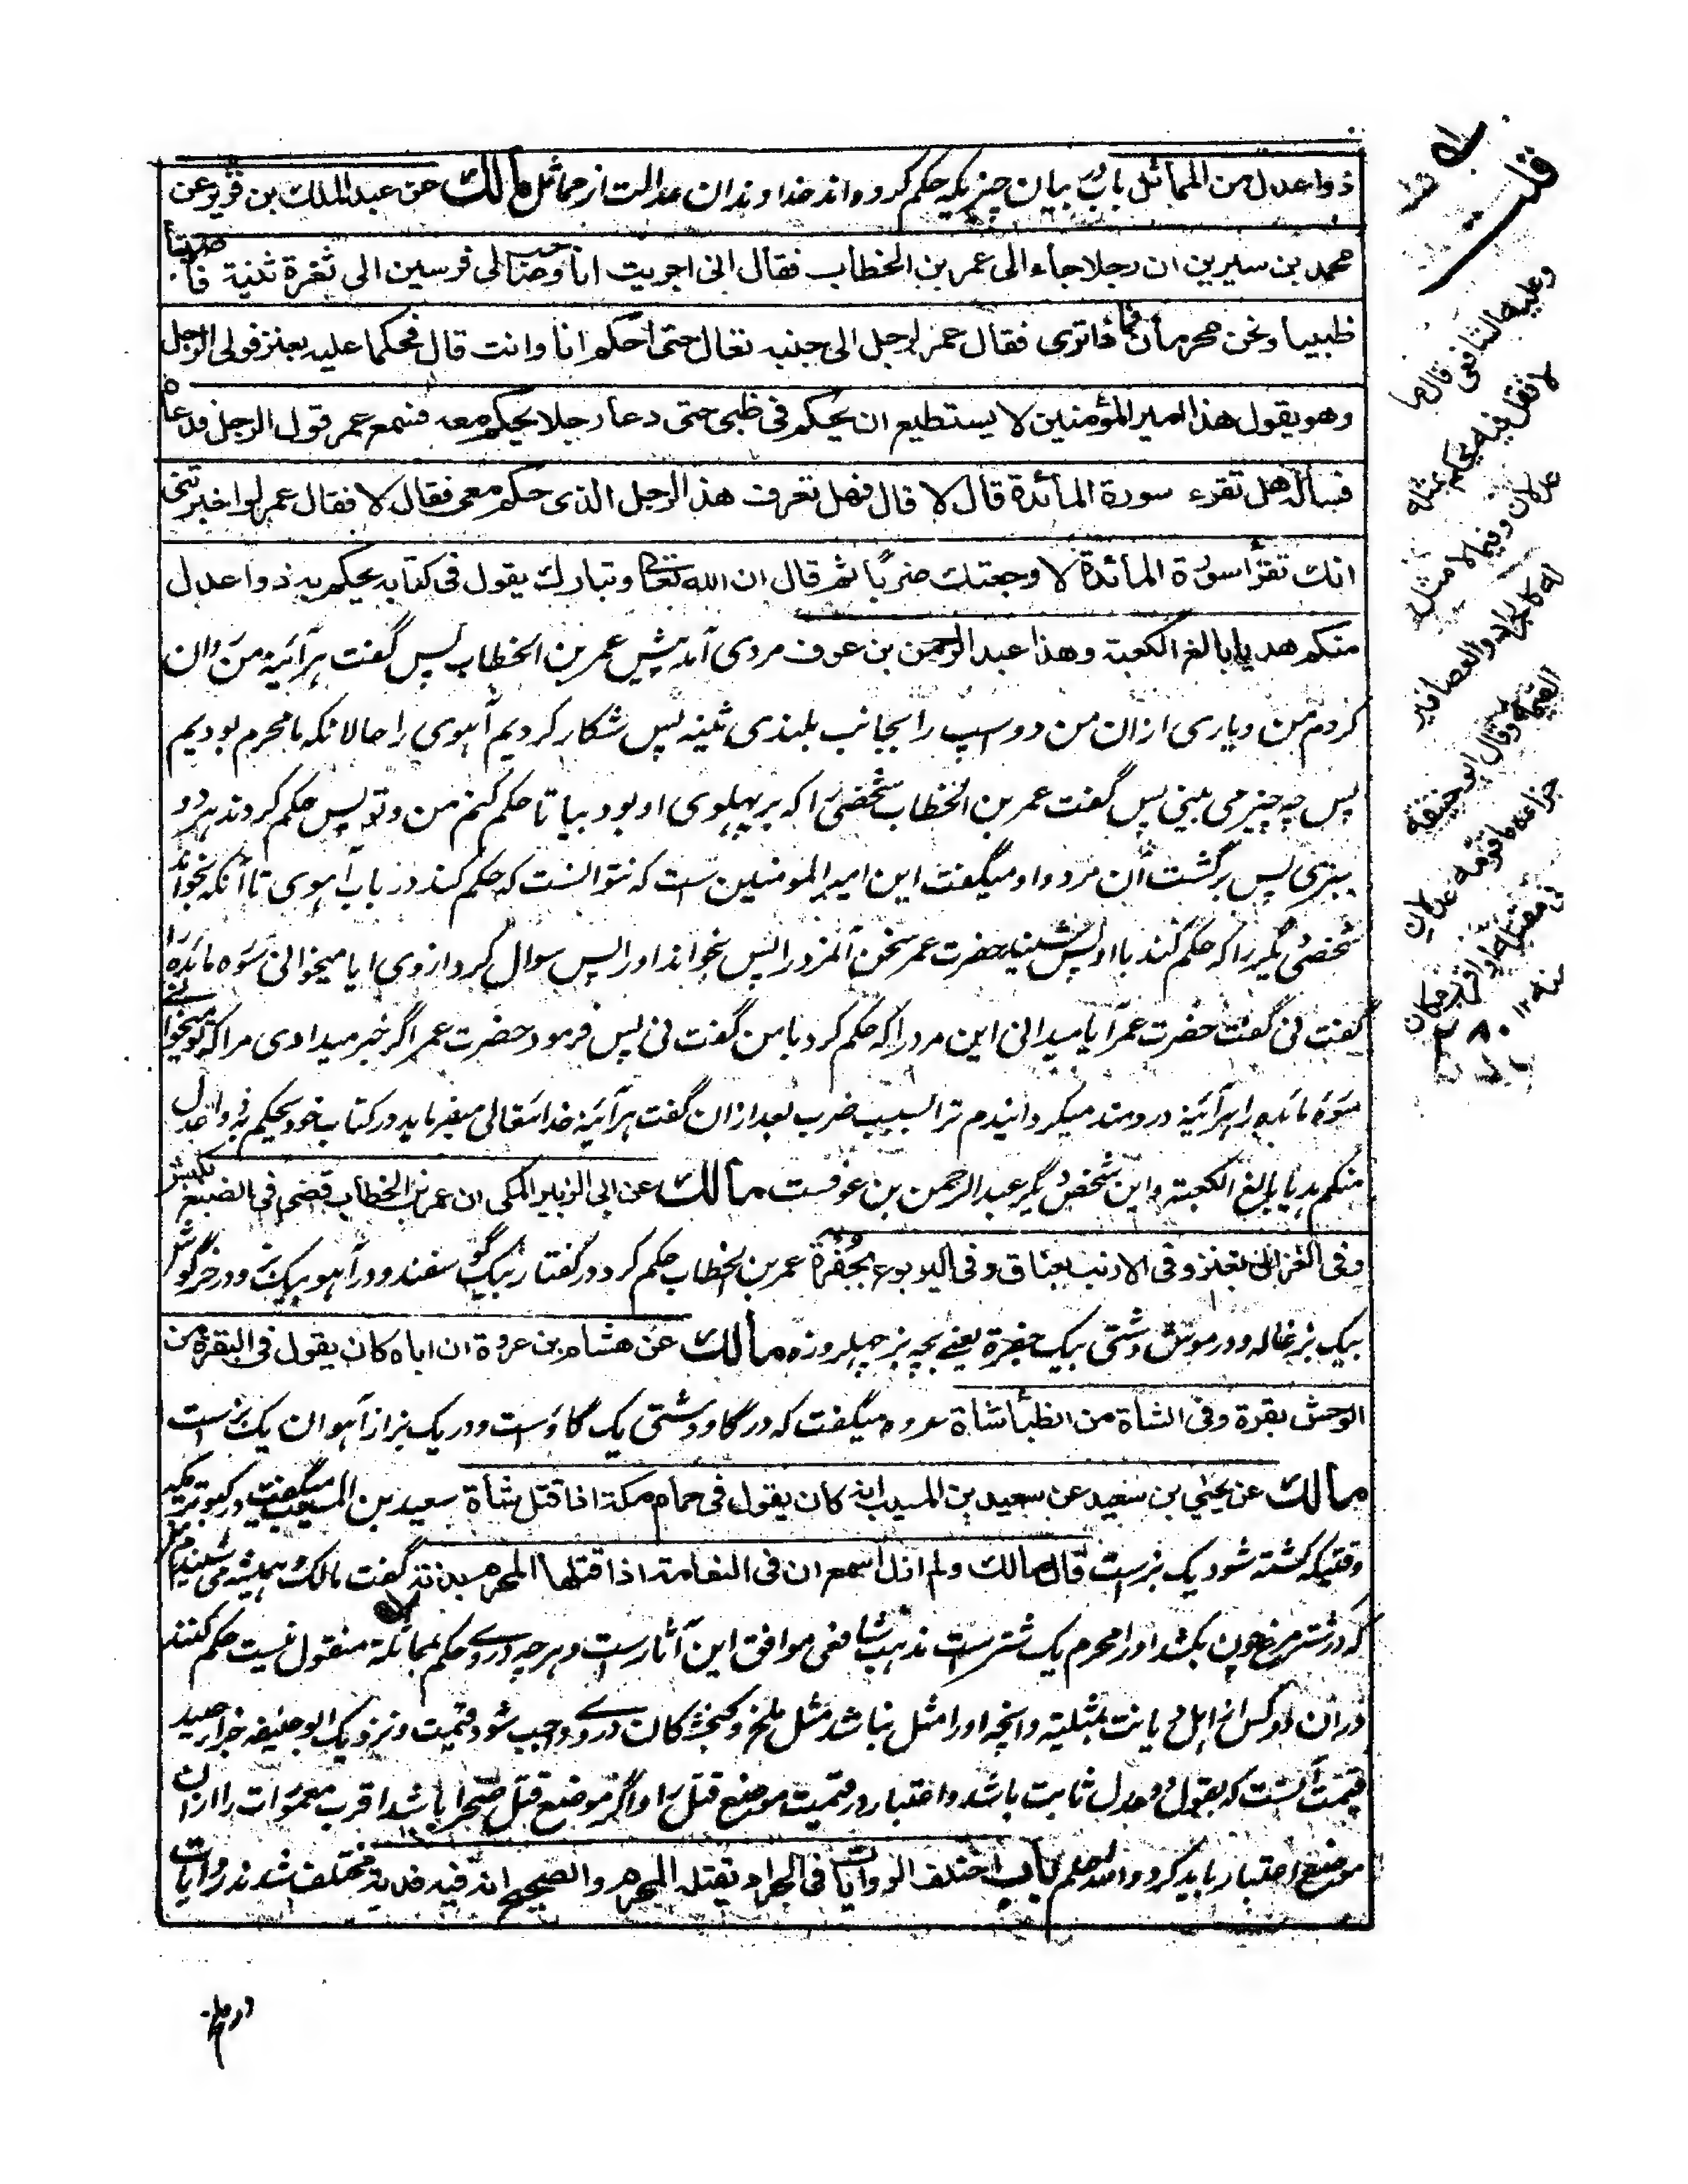 ذوا عدل من المماثل باب بیان چیزیکه حکم کرده اند خداوندان عدالت از مماثل مالك عن عبد الملك بن قرير عن
محمد بن سيرين ان رجلا جاء الى عمر بن الخطاب فقال انى اجريت انا وصاحب لى فرسين الى ثغرة ثنية فاصبنا
ظبيا ونحن محرمان فماذا ترى فقال عمر لرجل الى جنبه تعال حتى احكم انا وانت قال فحكما عليه بعنز فولى الرجل
وهو يقول هذا امير المؤمنين لا يستطيع ان يحكم فى ظبى حتى دعا رجلا يحكم معه فسمع عمر قول الرجل فدعاه
فسأله هل تقرء سورة المائدة قال لا قال فهل تعرف هذا الرجل الذى حكم معى فقال لا فقال عمر لو اخبرتنى
انك تقرأ سورة المائدة لاوجعتك ضربًا ثم قال ان الله تعالى وتبارك يقول فى كتابه يحكم به ذوا عدل
منكم هديا بالغ الكعبة وهذا عبد الرحمن بن عوف مردی آمد پیش عمر بن الخطاب پس گفت هرآئینه من روان
کردم من و یاری ازان من دو اسپ را بجانب بلندی ثنیه پس شکار کردیم آهوی را حالانکه ما محرم بودیم
پس چه چیز می بینی پس گفت عمر بن الخطاب شخصی را که بر پهلوی او بود بیا تا حکم کنم من و تو پس حکم کردند هر دو
ببزی پس برگشت آن مرد و او میگفت این امیر المومنین ست که نتوانست که حکم کند در باب آهوی تا آنکه بخواند
شخصی دیگر را که حکم کند با او پس شنید حضرت عمر سخن آنمرد را پس بخواند او را پس سوال کرد از وی ایا میخوانی سوره مائده را
گفت نی گفت حضرت عمر آیا میدانی این مرد را که حکم کرد با من گفت نی پس فرمود حضرت عمر اگر خبر میدادی مرا که تو میخوانی
سوره مائده را هرآئینه دردمند میگردانیدم ترا بسبب ضرب بعد ازان گفت هرآئینه خدایتعالی میفرماید در کتاب خود یحکم به ذوا عدل
منکم هدیا بالغ الکعبة و این شخص دیگر عبد الرحمن بن عوف ست مالك عن ابى الزبير المكى ان عمر بن الخطاب قضى فى الضبع بكبش
وفى الغزال بعنز وفى الارنب بعناق وفى اليربوع بجفرة عمر بن الخطاب حکم کرد در گفتار بیک گوسفند و در آهو بیک بز و در خرگوش
بیک بزغاله و در موش دشتی بیک جفرة یعنے بچه بز چهار روزه مالك عن هشام بن عروة ان اباه كان يقول فى البقرة من
الوحش بقرة وفى الشاة من الظبأ شاة عروه میگفت که در گاو دشتی یک گاو ست و در یک بز از آهوان یک بز ست
مالك عن يحيى بن سعيد عن سعيد بن المسيب انه كان يقول فى حمام مكة اذا قتل شاة سعید بن المسیب میگفت در کبوتر مکه
وقتیکه کشته شود یک بز ست قال مالك ولم ازل اسمع ان فى النعامة اذا قتلها المحرم بدنة گفت مالک و همیشه می شنیدم
که در شتر مرغ چون بکشد او را محرم یک شتر ست مذهب شافعی موافق این آثار ست و هر چه در وے حکم بمماثلة منقول نیست حکم کنند
دران دو کس از اهل دیانت بمثلیة و آنچه او را مثل نباشد مثل ملخ و کنجشکان در وے واجب شود قیمت و نزدیک ابو حنیفه جزا صید
قیمت آنست که بقول دو عدل ثابت باشد و اعتبار در قیمت موضع قتل را و اگر موضع قتل صحرا باشد اقرب معمورات را ازان
موضع اعتبار باید کرد والله اعلم باب اختلف الروايات فى الجراد يقتله المحرم والصحيح انه فيه فدية مختلف شدند روایات
قلت
وعليه الشافعى قال ما
لا نقل فيه يحكم بمثله
عدلان وفيما لا مثل
له كالجراد والعصافير
القيمة وقال ابو حنيفة
جزاءه ما قومه عدلان
فى مقتله او اقرب مكان
منه ١٢